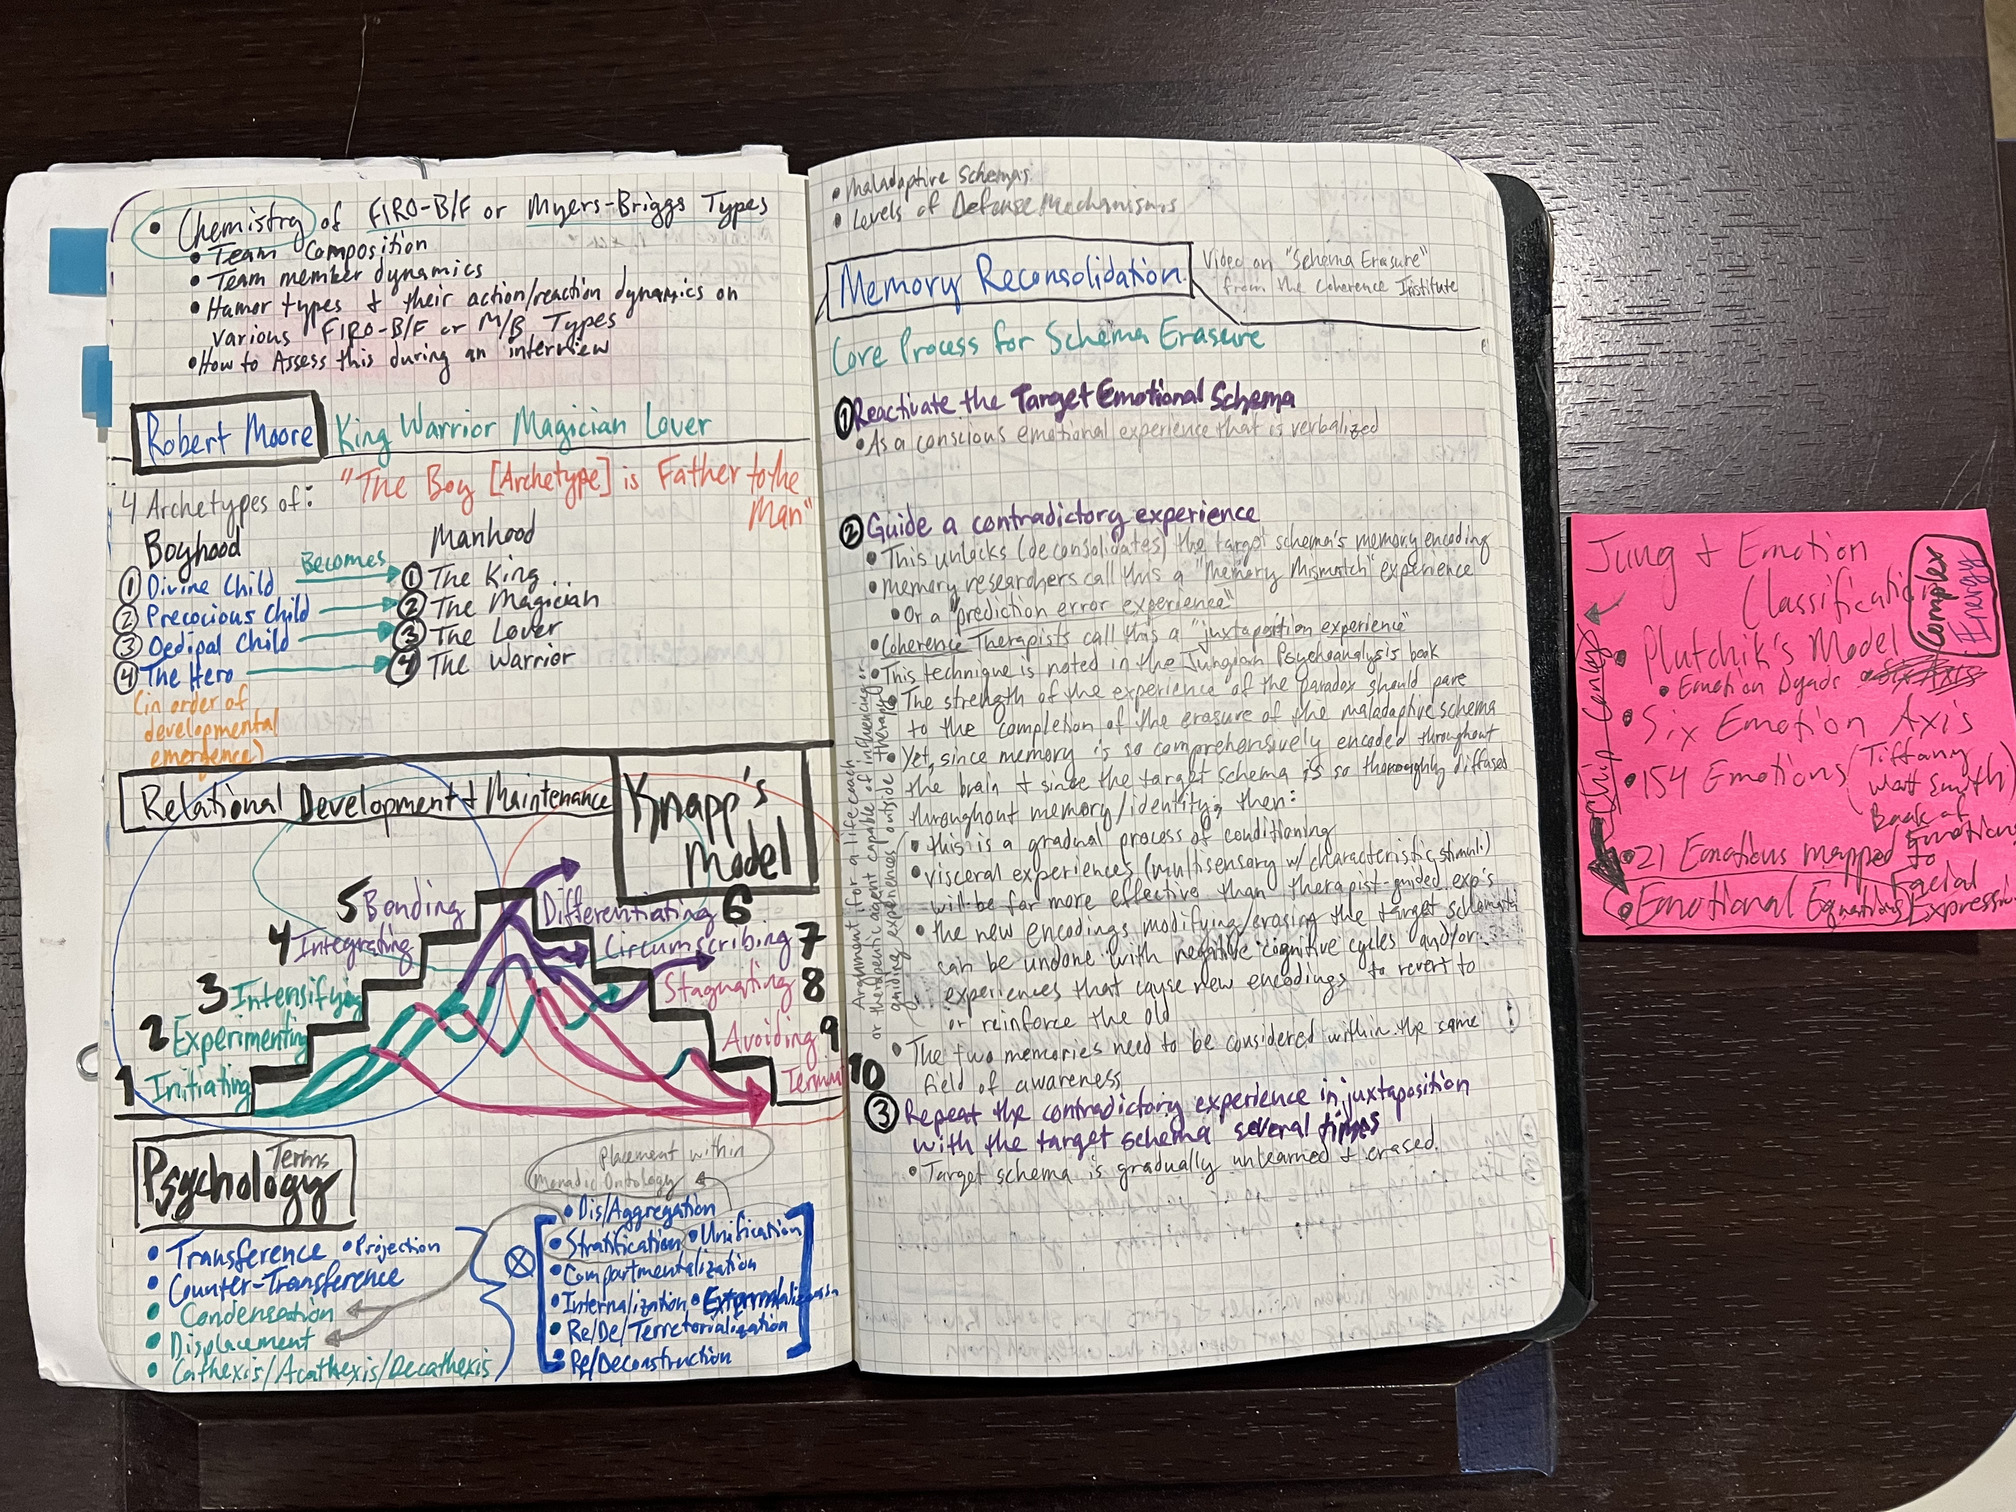 • Chemistry of FIRO-B/F or Myers-Briggs Types
• Team Composition
• Team member dynamics
• Humor types + their action/reaction dynamics on
various FIRO-B/F or M/B Types
• How to Assess this during an interview
Robert Moore
King Warrior Magician Lover
"The Boy [Archetype] is Father to the
Man"
4 Archetypes of:
Boyhood
Becomes
Manhood
① Divine Child
① The King
② Precocious Child
② The Magician
③ Oedipal Child
③ The Lover
④ The Hero
④ The Warrior
(in order of
developmental
emergence)
Relational Development + Maintenance
Knapp's
Model
5 Bonding
Differentiating 6
4 Integrating
Circumscribing 7
3 Intensifying
Stagnating 8
2 Experimenting
Avoiding 9
1 Initiating
10
Psychology Terms
• Transference • Projection
• Counter-Transference
• Condensation
• Displacement
• Cathexis/Acathexis/Decathexis
Placement within
Monadic Ontology
• Dis/Aggregation
• Stratification • Unification
• Compartmentalization
• Internalization • Externalization
• Re/De/Terretorialization
• Re/Deconstruction
• Maladaptive Schemas
• Levels of Defense Mechanisms
Memory Reconsolidation
Video on "Schema Erasure"
from the Coherence Institute
Core Process for Schema Erasure
① Reactivate the Target Emotional Schema
• As a conscious emotional experience that is verbalized
② Guide a contradictory experience
• This unlocks (deconsolidates) the target schema's memory encoding
• Memory researchers call this a "Memory Mismatch" experience
• Or a "prediction error experience"
• Coherence Therapists call this a "juxtaposition experience"
• This technique is noted in the Jungian Psychoanalysis book
• The strength of the experience of the paradox should pave
to the completion of the erasure of the maladaptive schema
• Yet, since memory is so comprehensively encoded throughout
the brain + since the target schema is so thoroughly diffused
throughout memory/identity, then:
• this is a gradual process of conditioning
• visceral experiences (multisensory w/ characteristic stimuli)
will be far more effective than therapist-guided exp's
• the new encodings modifying/erasing the target schemata
can be undone with negative cognitive cycles and/or
experiences that cause new encodings to revert to
or reinforce the old
• The two memories need to be considered within the same
field of awareness
Argument for a life coach
or therapeutic agent capable of influencing or
guiding experiences outside therapy
③ Repeat the contradictory experience in juxtaposition
with the target schema several times
• Target schema is gradually unlearned + erased.
Jung + Emotion
Classification
Complex
Energy
• Plutchik's Model
• Emotion Dyads
• Six Emotion Axis
• 154 Emotions (Tiffany
Watt Smith)
Book of
Emotions
• 21 Emotions mapped to
Facial
Expressi
• Emotional Equations
Chip Conley